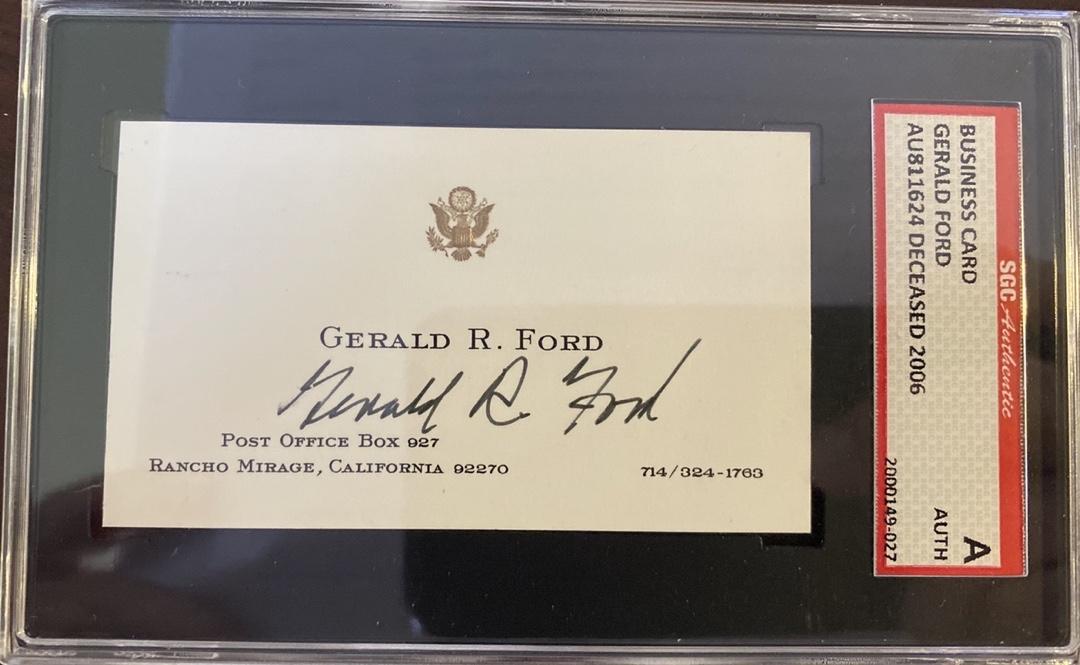 GERALD R. FORD
Gerald R. Ford
POST OFFICE BOX 927
RANCHO MIRAGE, CALIFORNIA 92270
714/324-1763
SGC Authentic
BUSINESS CARD
GERALD FORD
AU811624 DECEASED 2006
A
AUTH
2000149-027